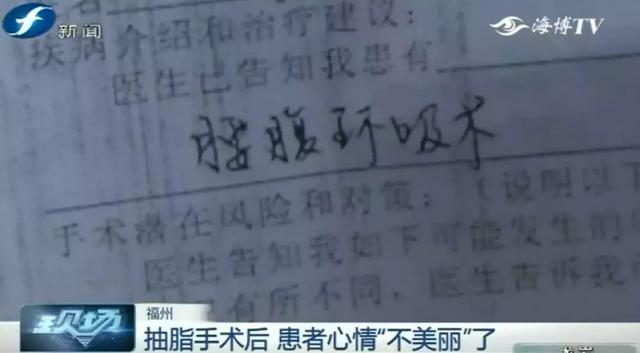 新闻
海博TV
疾病介绍和治疗建议:
医生已告知我患有
腰腹环吸术
手术潜在风险和对策:(说明以下
医生告知我如下可能发生的
有所不同,医生告诉我
现场
福州
抽脂手术后 患者心情“不美丽”了